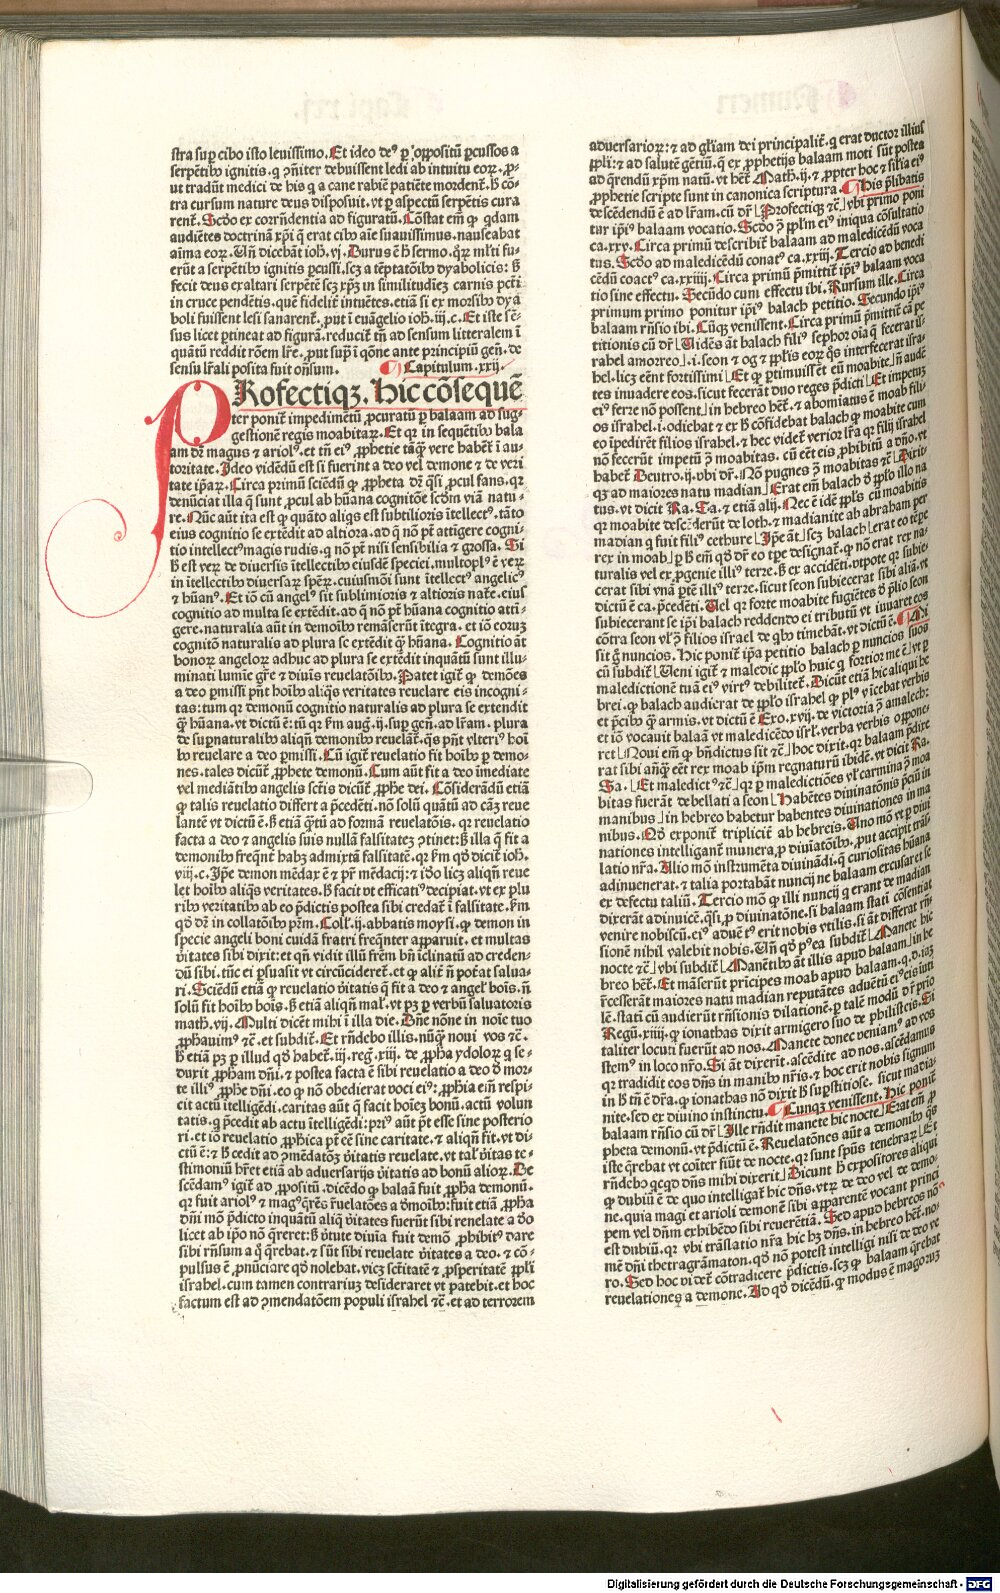 stra sup̄ cibo isto leuissimo. Et ideo deꝰ ꝑ oppositū ꝑcussos a
serpētibꝰ ignitis. q ꝯniter debuissent ledi ab intuitu eoꝝ. ꝓ
ut tradūt medici de his q a cane rabiē patiēte mordent̄. ħ cō
tra cursum nature deus disposuit. vt ꝑ aspectū serpētis cura
rent̄. Scđo ex corrn̄dentia ad figuratū. Cōstat em̄ ꝙ qdam
audiētes doctrinā xp̄i q̄ erat cibꝰ aīe suauissimus. nauseabat
aīma eoꝝ. Un̄ dicebāt ioh. vj. Durus ē hˀ sermo. q̄ꝝ ml̄ti fu
erūt a serpētibꝰ ignitis ꝑcussi. scꝫ a tēptatōibꝰ dyabolicis: ħ
fecit deus exaltari serpētē scꝫ xp̄ꝫ in similitudieꝫ carnis pctī
in cruce pendētis. quē fidelit̄ intuētes. etiā si ex morsibꝰ dya
boli fuissent lesi sanarent̄. ꝓut ī euāgelio ioh. iij. c. Et iste sē
sus licet ꝑtineat ad figurā. reducit̄ tn̄ ad sensum litteralem ī
quātū reddit rōem lr̄e. ꝓut sup̄ ī qōne ante principiū gen̄. de
sensu lr̄ali posita fuit on̄sum. Capitulum .xxij.
PRofectiqꝫ. Hic cōsequē
ter ponit̄ impedimētū ꝓcuratū ꝑ balaam ad sug
gestionē regis moabitaꝝ. Et qꝛ in sequētibꝰ bala
am dr̄ magus ⁊ ariolꝰ. et tn̄ eiꝰ ꝓphetie tāq̄ꝫ vere habent̄ ī au
toritate. Ideo vidēdū est si fuerint a deo vel demone ⁊ de veri
tate ip̄aꝝ. Circa primū sciēdū ꝙ ꝓpheta dr̄ q̄si ꝓcul fans. qꝛ
denūciat illa q̄ sunt ꝓcul ab hūana cognitōe scđm viā natu
re. Nūc aūt ita est ꝙ quāto aliqs est subtilioris ītellectꝰ. tāto
eius cognitio se extēdit ad altiora. ad q̄ nō pōt attigere cogni
tio intellectꝰ magis rudis. q nō pōt nisi sensibilia ⁊ grossa. Si
ħ est veꝝ de diuersis ītellectibꝰ eiusdē speciei. multoplꝰ ē veꝝ
in ītellectibꝰ diuersaꝝ sperꝝ. cuiusmōi sunt ītellectꝰ angelicꝰ
⁊ hūanꝰ. Et iō cū angelꝰ sit sublimioris ⁊ altioris nat̄e. eius
cognitio ad multa se extēdit. ad q̄ nō pōt hūana cognitio atti
gere. naturalia aūt in demoībꝰ remāserūt ītegra. et iō eorum
cognitō naturalis ad plura se extēdit q̄ꝫ hūana. Cognitio aūt
bonoꝝ angeloꝝ adhuc ad plura se extēdit inquātū sunt illu
minati lumīe gr̄e ⁊ diuīs reuelatōibꝰ. Patet igit̄ ꝙ demōes
a deo ꝑmissi pn̄t hoībꝰ aliqs veritates reuelare eis incogni
tas: tum qꝛ demonū cognitio naturalis ad plura se extendit
q̄ꝫ hūana. vt dictū ē: tū qꝛ km̄ aug. ij. sup̄ gen̄. ad lr̄am. plura
de sup̄naturalibꝰ aliqn̄ demonibꝰ reuelāt̄. q̄s pn̄t vlteriꝰ hoī
bꝰ reuelare a deo ꝑmissi. Cū igit̄ reuelatio fit hoībꝰ ꝑ demo
nes. tales dicūt̄ ꝓphete demonū. Cum aūt fit a deo īmediate
vel mediātibꝰ angelis scīs dicūt̄ ꝓphe dei. Cōsiderādū etiā
ꝙ talis reuelatio differt a ꝓcedēti. nō solū quātū ad cāꝫ reue
lantē vt dictū ē. ħ etiā q̄tū ad formā reuelatōis. qꝛ reuelatio
facta a deo ⁊ angelis suis nullā falsitateꝫ ꝯtinet: ħ illa q̄ fit a
demonibꝰ freq̄nt̄ habꝫ admixtā falsitatē. qꝛ km̄ qđ dicit̄ ioh.
viij. c. Ip̄e demon mēdax ē ⁊ pr̄ mēdacij: ⁊ iđo licꝫ aliqn̄ reue
let hoībꝰ aliqs veritates. ħ facit vt efficatiꝰ decipiat. vt ex plu
ribꝰ veritatibꝰ ab eo p̄dictis postea sibi credat̄ ī falsitate. km̄
qđ dr̄ in collatōibꝰ pr̄m. Coll. ij. abbatis moysi. ꝙ demon in
specie angeli boni cuidā fratri freq̄nter apparuit. et multas
v̄itates sibi dixit: et qn̄ vidit illū frēm bn̄ īclinatū ad creden
dū sibi. tūc ei ꝑsuasit vt circūcideret̄. et ꝙ alit̄ n̄ potāt salua
ri. Sciēdū etiā ꝙ reuelatio v̄itatis q̄ fit a deo ⁊ angel boīs. n̄
solū fit hoībꝰ boīs. ħ etiā aliqn̄ malˀ. vt pꝫ ꝑ verbū saluatoris
math. vij. Multi dicēt mihi ī illa die. Dn̄e nōne in noīe tuo
ꝓphauimꝰ ⁊c̄. et subdit̄. Et rn̄debo illis. nūq̄ꝫ noui vos ⁊c̄.
ħ etiā pꝫ ꝑ illud qđ habet̄. iij. reg. xiij. de ꝓpha ydoloꝝ q se
duxit ꝓpham dn̄i. ⁊ postea facta ē sibi reuelatio a deo đ mor
te illiꝰ ꝓphe dn̄i. eo ꝙ nō obedierat voci eiꝰ: ꝓphia em̄ respi
cit actū itelligēdi. caritas aūt q̄ facit hoīeꝫ bonū. actū volun
tatis. q̄ ꝓcedit ab actu ītelligēdi: priꝰ aūt pōt esse sine posterio
ri. et iō reuelatio ꝓphica pōt eē sine caritate. ⁊ aliqn̄ fit. vt di
ctū ē: ⁊ ħ cedit ad ꝯmēdatōꝫ v̄itatis reuelate. vt talˀ v̄itas te
stimoniū hr̄et etiā ab aduersarijs v̄itatis ad bonū alioꝝ. De
scēdamˀ igit̄ ad ꝓpositū. dicēdo ꝙ balaā fuit ꝓpha demonū.
qꝛ fuit ariolꝰ ⁊ magꝰ q̄rēs r̄uelatōes a đmoībꝰ: fuit etiā ꝓpha
dn̄i mō p̄dicto inquātū aliq̄ v̄itates fuerūt sibi reuelate a đo
licet ab ip̄o nō q̄reret: ħ v̄tute diuīa fuit demō ꝓhibitꝰ dare
sibi rn̄sum a q̄ q̄rebat. ⁊ sūt sibi reuelate v̄itates a deo. ⁊ cō
pulsus ē ꝓnūciare qđ nolebat. vicꝫ scītatē ⁊ ꝓsperitatē ppl̄i
israhel. cum tamen contrariuꝫ desideraret vt patebit. et hoc
factum est ad ꝯmendatōem populi israhel ⁊c̄. et ad terrorem
aduersarioꝝ: ⁊ ad gl̄iam dei principalit̄. q erat ductor illius
ppl̄i: ⁊ ad salutē gētiū. q̄ ex ꝓphetijs balaam moti sūt postea
ad q̄rendū xp̄m natū. vt het̄ Math. ij. ⁊ ꝓpter hoc ⁊ silia eiꝰ
ꝓphetie scripte sunt in canonica scriptura. His p̄libatis
descēdendū ē ad lr̄am. cū dr̄ Profectiqꝫ ⁊c̄ vbi primo poni
tur ip̄iꝰ balaam vocatio. Scđo ꝯ ppl̄m eiꝰ iniqua cōsultatio
ca. xxv. Circa primū describit̄ balaam ad maledicēdū voca
tus. Scđo ad maledicēdū conatꝰ ca. xxiij. Tercio ad benedi
cēdū coactꝰ ca. xxiiij. Circa primū p̄mittit̄ ip̄iꝰ balaam voca
tio sine effectu. Secūdo cum effectu ibi. Rursum ille. Circa
primum primo ponitur ip̄iꝰ balach petitio. Secundo ip̄iꝰ
balaam rn̄sio ibi. Cūqꝫ venissent. Circa primū p̄mittit̄ cā pe
titionis cū dr̄ Uidēs aūt balach filiꝰ sephor oīa q̄ fecerat is
rahel amorreo .i. seon ⁊ og ⁊ ppl̄is eoꝝ q̄s interfecerat isra
hel. licꝫ eēnt fortissimi Et ꝙ ꝑtimuissēt eū moabite. n̄ audē
tes inuadere eos. sicut fecerāt duo reges p̄dicti Et impetuꝫ
eiꝰ ferre nō possent in hebreo het̄. ⁊ abomiatus ē moab fili
os israhel .i. odiebat ⁊ ex ħ cōfidebat balach ꝙ moabite cum
eo īpedirēt filios israhel. ⁊ hec videt̄ verior lr̄a qꝛ filij israhel
nō fecerūt impetū ꝯ moabitas. cū eēt eis ꝓhibitū a dn̄o. vt
habet̄ Deutro. ij. vbi dr̄. Nō pugnes ꝯ moabitas ⁊c̄ Dixit
qꝫ ad maiores natu madian Erat em̄ balach đ ppl̄o illo na
tus. vt dicit Ra. Sa. ⁊ etiā alij. Nec ē idē ppl̄s cū moabitis
qꝛ moabite descēderūt de loth. ⁊ madianite ab abraham per
madian q fuit filiꝰ cethure Ip̄e aūt scꝫ balach erat eo tēpe
rex in moab ꝑ ħ em̄ qđ dr̄ eo tpe designat̄. ꝙ nō erat rex na
turalis vel ex ꝓgenie illiꝰ terre. ħ ex accidēti. vtpote qꝛ subie
cerat sibi vnā ꝑtē illiꝰ terre. sicut seon subiecerat sibi aliā. vt
dictū ē ca. ꝓcedēti. Uel qꝛ forte moabite fugiētes đ p̄lio seon
subiecerant se ip̄i balach reddendo ei tributū vt iuuaret eos
cōtra seon vl̄ ꝯ filios israel de qbꝰ timebāt. vt dictū ē. Mi
sit g̊ nuncios. Hic ponit̄ ip̄a petitio balach ꝑ nuncios suos
cū subdit̄ Ueni igit̄ ⁊ maledic ppl̄o huic q fortior me ē vt ꝑ
maledictionē tuā eiꝰ virtꝰ debilitet̄. Dicūt etiā hic aliqui he
brei. ꝙ balach audierat de ppl̄o israhel ꝙ plꝰ vīcebat verbis
et p̄cibꝰ q̄ꝫ armis. vt dictū ē Exo. xvij. de victoria ꝯ amalech:
et iō vocauit balaā vt maledicēdo isrl̄. verba verbis oppone
ret Noui em̄ ꝙ bn̄dictus sit ⁊c̄ hoc dixit. qꝛ balaam p̄dixe
rat sibi an̄q̄ꝫ eēt rex moab ip̄m regnaturū ibidē. vt dicit Ra.
Sa. Et maledictꝰ ⁊c̄ qꝛ ꝑ maledictiōes vl̄ carmina ꝯ moa
bitas fuerāt debellati a seon Habētes diuinatōis p̄ciū in
manibus in hebreo habetur habentes diuinationes in ma
nibus. Qđ exponit̄ triplicit̄ ab hebreis. Uno mō vt ꝑ diui
nationes intelligant̄ munera ꝓ diuīatōibꝰ. ꝓut accipit trās
latio nr̄a. Alio mō instrumēta diuinādi. q̄ curiositas hūana
adinuenerat. ⁊ talia portabāt nuncij ne balaam excusaret se
ex defectu taliū. Tercio mō ꝙ illi nuncij q erant de madian
dixerāt adinuicē. q̄si ꝓ diuinatōne. si balaam statī cōsentiat
venire nobiscū. eiꝰ aduētꝰ erit nobis vtilis. si āt differat rn̄
sionē nihil valebit nobis. Un̄ qđ pꝰea subdit̄ Manete hic
nocte ⁊c̄ vbi subdit̄ Manētibꝰ āt illis apud balaam in he
breo het̄. Et māserūt p̄ncipes moab apud balaam. q. d. iaꝫ
r̄cesserāt maiores natu madian reputātes aduētū eiꝰ eis īuti
lē. statī cū audierūt rn̄sionis dilationē. ꝑ talē modū dr̄ prīo
Regū. xiiij. ꝙ ionathas dixit armigero suo de philisteis. Si
taliter locuti fuerūt ad nos. Manete donec veniamꝰ ad vos
stemꝰ in loco nr̄o. Si āt dixerīt. ascēdite ad nos. ascēdamus
qꝛ tradidit eos dn̄s in manibꝰ nr̄is. ⁊ hoc erit nobis signum
in ħ tn̄ ē dr̄a. ꝙ ionathas nō dixit ħ sup̄stitiose. sicut madia
nite. sed ex diuino instinctu. Cunqꝫ venissent. Hic ponit̄
balaam rn̄sio cū dr̄ Ille rn̄dit manete hic nocte Erat em̄ ꝓ
pheta demonū. vt p̄dictū ē. Reuelatōnes aūt a demonibꝰ q̄s
iste q̄rebat vt coīter fiūt de nocte. qꝛ sunt spūs tenebraꝝ Et
rn̄debo qcqđ dn̄s mihi dixerit Dicunt ħ expositores aliqui
ꝙ dubiū ē de quo intelligat̄ hic dn̄s. vtꝝ de deo vel de demo
ne. quia magi et arioli demonē sibi apparentē vocant princi
pem vel dn̄m exhibēdo sibi reuerētiā. Sed apud hebreos nō
est dubiū. qꝛ vbi trāslatio nr̄a hic hꝫ dn̄s. in hebreo het̄. no
mē dn̄i thetragrāmaton. qđ nō potest intelligi nisi de deo ve
ro. Sed hoc videt̄ cōtradicere p̄dictis. scꝫ ꝙ balaam q̄rebat
reuelationes a demone. Ad qđ dicēdū. ꝙ modus ē magoruꝫ
Digitalisierung gefördert durch die Deutsche Forschungsgemeinschaft - DFG